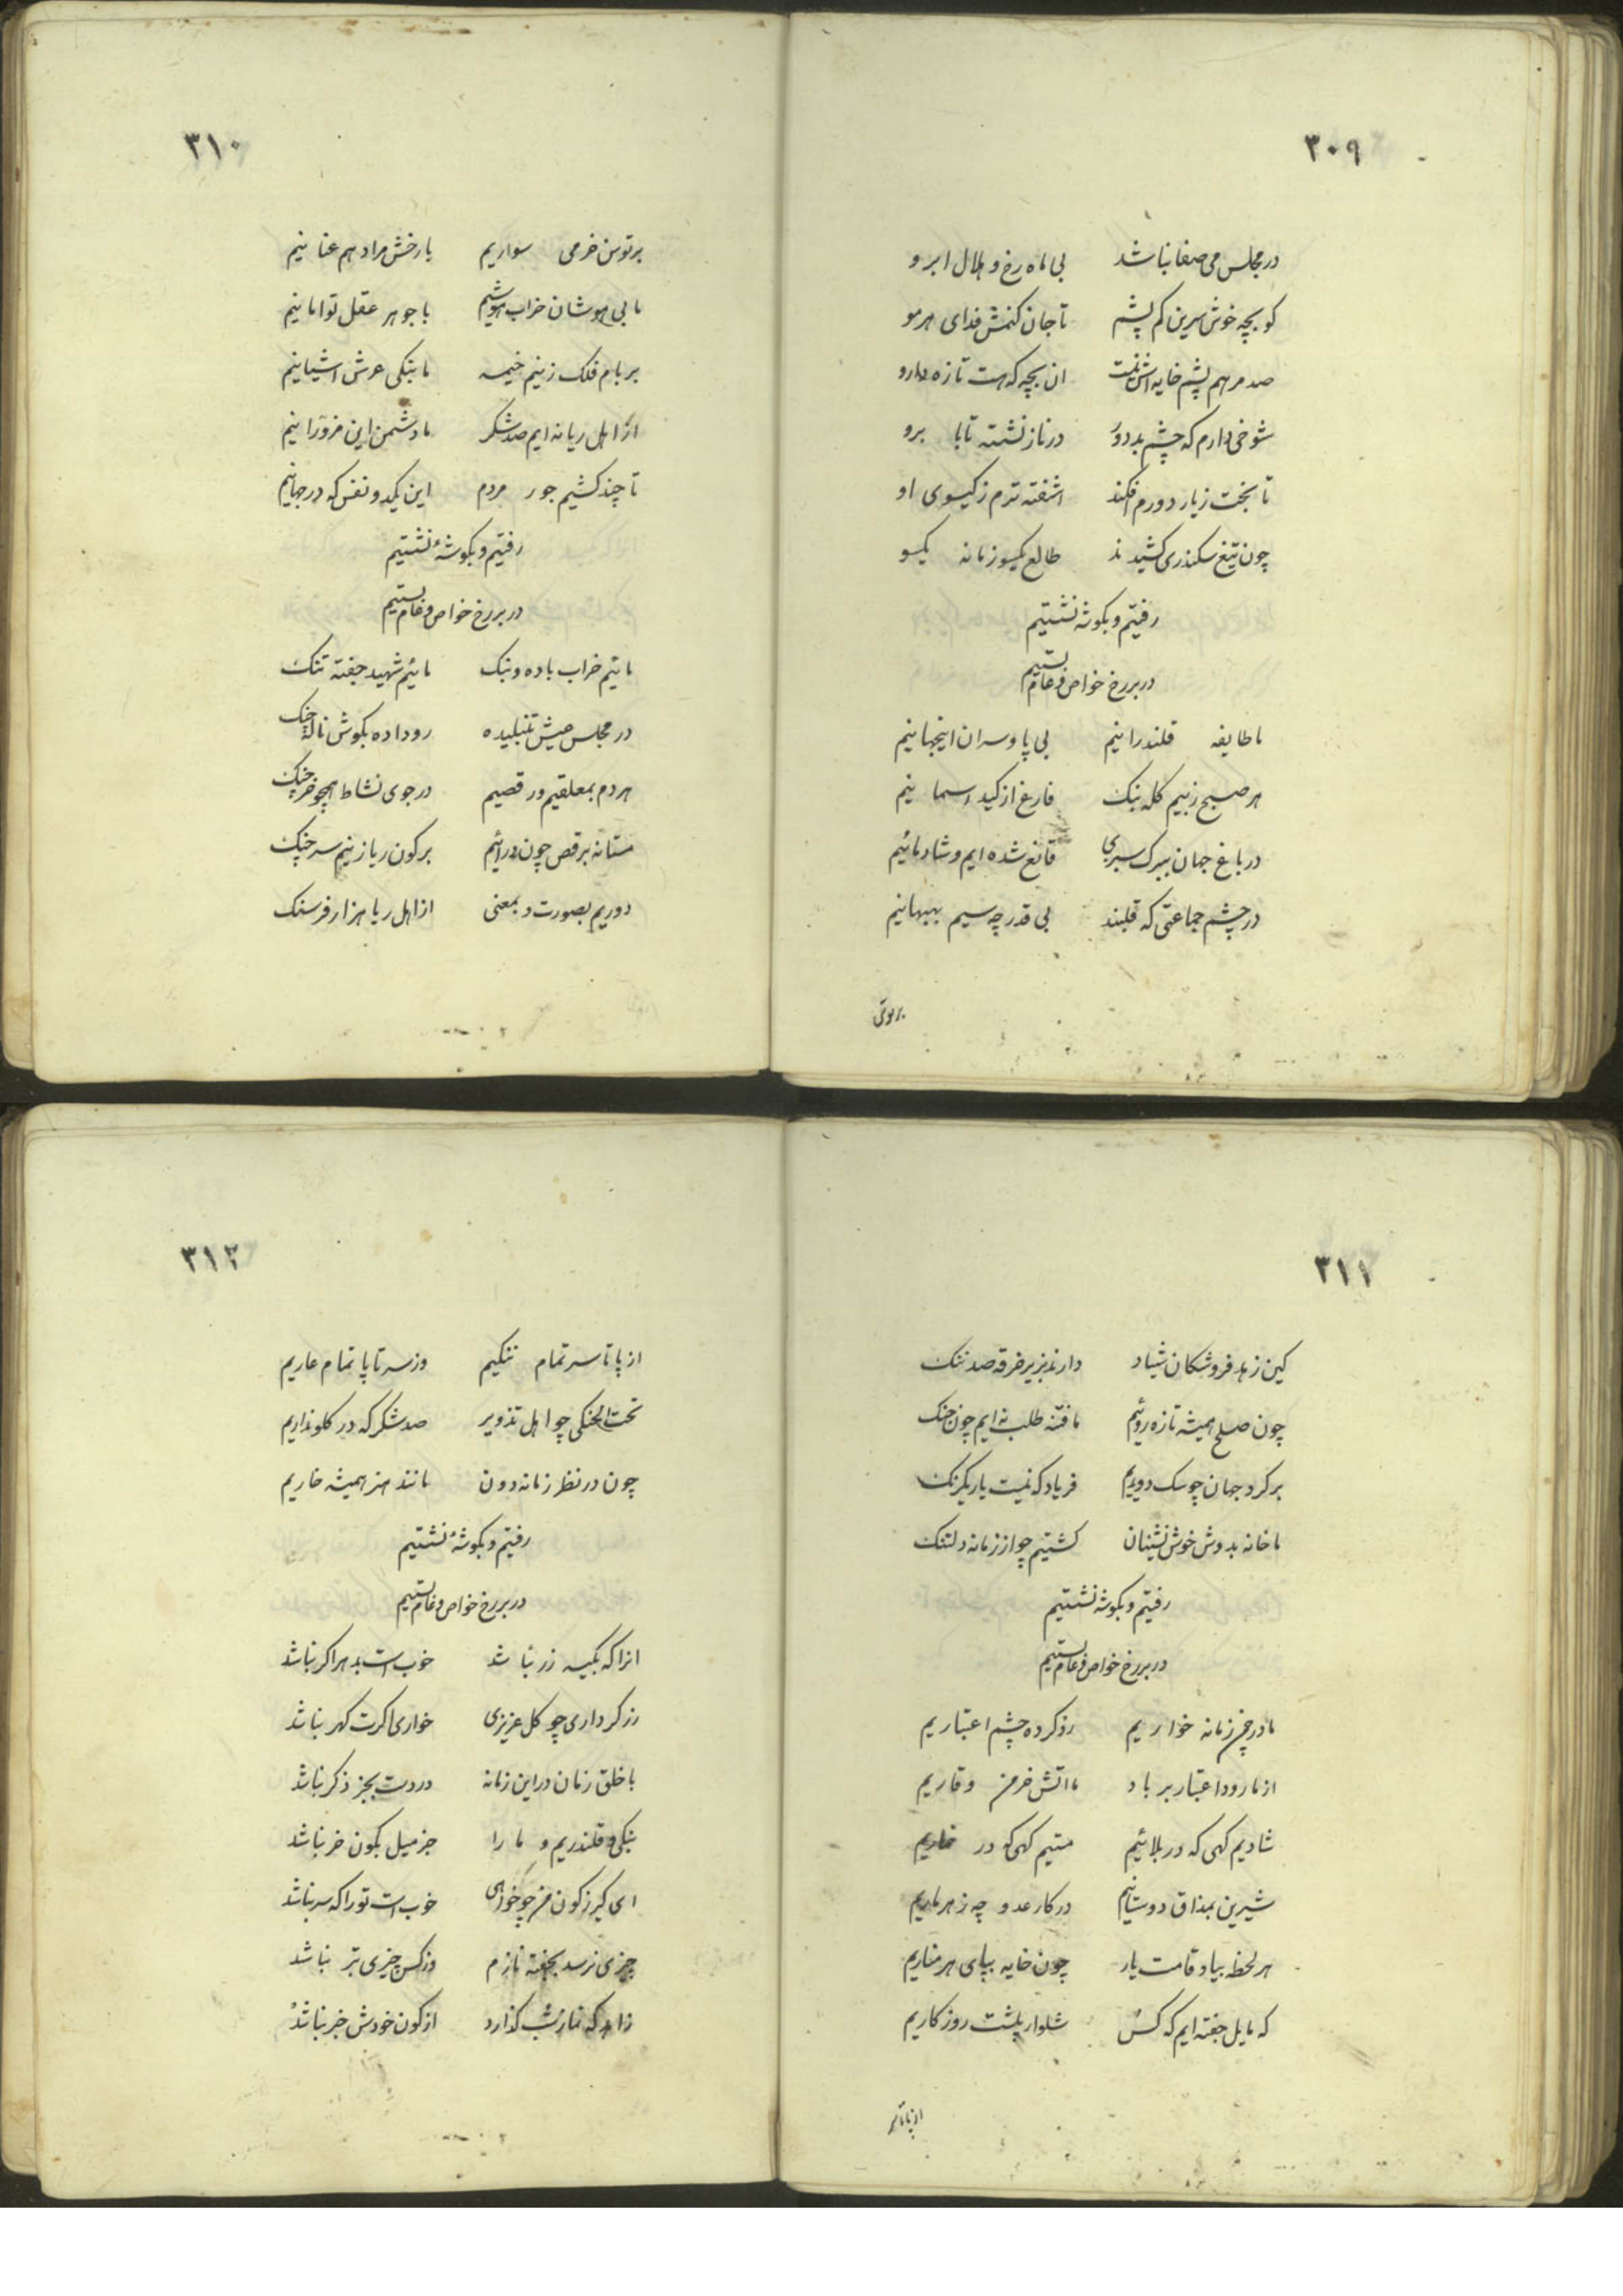 ۳۰۹
در مجلس می صفا نباشد بی ماه رخ و هلال ابرو
کو بچه خوش سرین کم پشم تا جان کنمش فدای هر مو
صد مرهم پشم خایه اش نیست ان بچه که هست تازه دارو
شوخی دارم که چشم بد دور در ناز نشسته تا بابرو
تا بخت ز یار دورم افکند اشفته ترم ز کیسوی او
چون تیغ سکندری کشیدند طالع یکسو زمانه یکسو
رفتیم و بکوشه نشستیم
در بر رخ خاص و عام بستیم
ما طایفه قلندرانیم بی پا و سران اینجهانیم
هر صبح زنیم کله بنک فارغ از کید اسمانیم
در باغ جهان ببرک سبزی قانع شده ایم و شادمانیم
در چشم جماعتی که قلبند بی قدر چه سیم بیبهانیم
بر توسن
۳۱۰
بر توسن خرمی سواریم با رخش مراد هم عنانیم
ما بی هوشان خراب هوشیم با جوهر عقل توامانیم
بر بام فلک زنیم خیمه ما بنکی عرش اشیانیم
از اهل ریا نه ایم صد شکر ما دشمن این مزورانیم
تا چند کشیم جور مردم این یکدو نفس که در جهانیم
رفتیم و بکوشهٔ نشستیم
در بر رخ خاص و عام بستیم
مائیم خراب باده و بنک مائیم شهید جفته تنک
در مجلس عیش تنبلیده رو داده بکوش ناله چنک
هردم بمعلقیم و رقصیم در جوی نشاط همچو خرچنک
مستانه برقص چون درائیم بر کون ریا زنیم سرچنک
دوریم بصورت و بمعنی از اهل ریا هزار فرسنک
۳۱۱
کین زهد فروشکان شیاد دارند بزیر خرقه صد ننک
چون صلح همیشه تازه روئیم ما فتنه طلب نه ایم چون جنک
بر کرد جهان چو سک دویدیم فریاد که نیست یار یکرنک
ما خانه بدوش خوش نشینان کشتیم چو از زمانه دلتنک
رفتیم و بکوشه نشستیم
در بر رخ خاص و عام بستیم
ما در چمن زمانه خواریم رد کرده چشم اعتباریم
از ما رود اعتبار بر باد ما اتش خرمن وقاریم
شادیم کهی که در بلائیم مستیم کهی که در خماریم
شیرین بمذاق دوستانیم در کار عدو چه زهر ماریم
هر لحظه بیاد قامت یار چون خایه بپای هر مناریم
که مایل جفته ایم که کس شلوار پلشت روزکاریم
از پا تا سر
۳۱۲
از پا تا سر تمام ننکیم وز سر تا پا تمام عاریم
تحت الحنکی چو اهل تذویر صد شکر که در کلو نداریم
چون در نظر زمانه دون مانند هنر همیشه خاریم
رفتیم و بکوشهٔ نشستیم
در بر رخ خاص و عام بستیم
انرا که بکیسه زر نباشد خوب است بدهر اکر نباشد
زر کر داری چو کل عزیزی خواری اکرت کهر نباشد
با خلق زمان در این زمانه دردت بجز ذکر نباشد
بنکی و قلندریم و ما را جز میل بکون خر نباشد
ای کیر ز کون من چو خواهی خوب است تو را که سر نباشد
چیزی نرسد بجفته نازم وز کس چیزی بتر نباشد
زاهد که نماز شب کذارد از کون خودش خبر نباشد